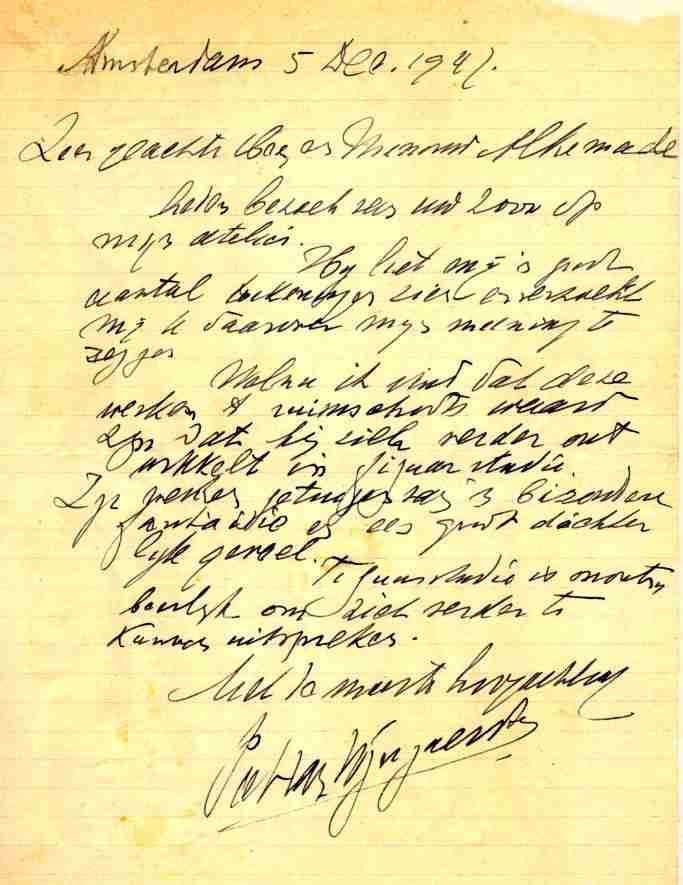 Amsterdam 5 Dec. 1947.
Zeer geachte Heer en Mevrouw Alkemade
heden bezoek van uw zoon op
mijn atelier.
Hij liet mij 'n groot
aantal tekeningen zien en verzoekt
mij U daarover mijn meening te
zeggen
Welnu ik vind dat deze
werken 't ruimschoots waard
zijn dat hij zich verder ont
wikkelt in figuurstudie.
Zijn werken getuigen van 'n bizondere
fantaisie en een groot dichter
lijk gevoel.
Figuurstudie is onont
beerlijk om zich verder te
kunnen uitspreken.
Met de meeste hoogachting
Piet van Wijngaerdt